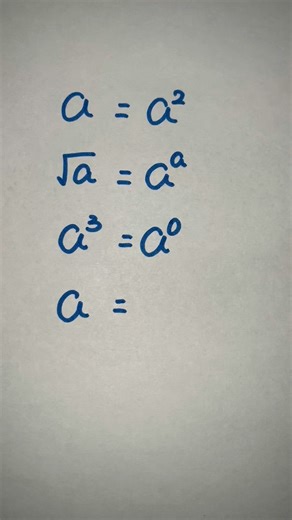 a = a²
√a = aᵃ
a³ = a⁰
a =